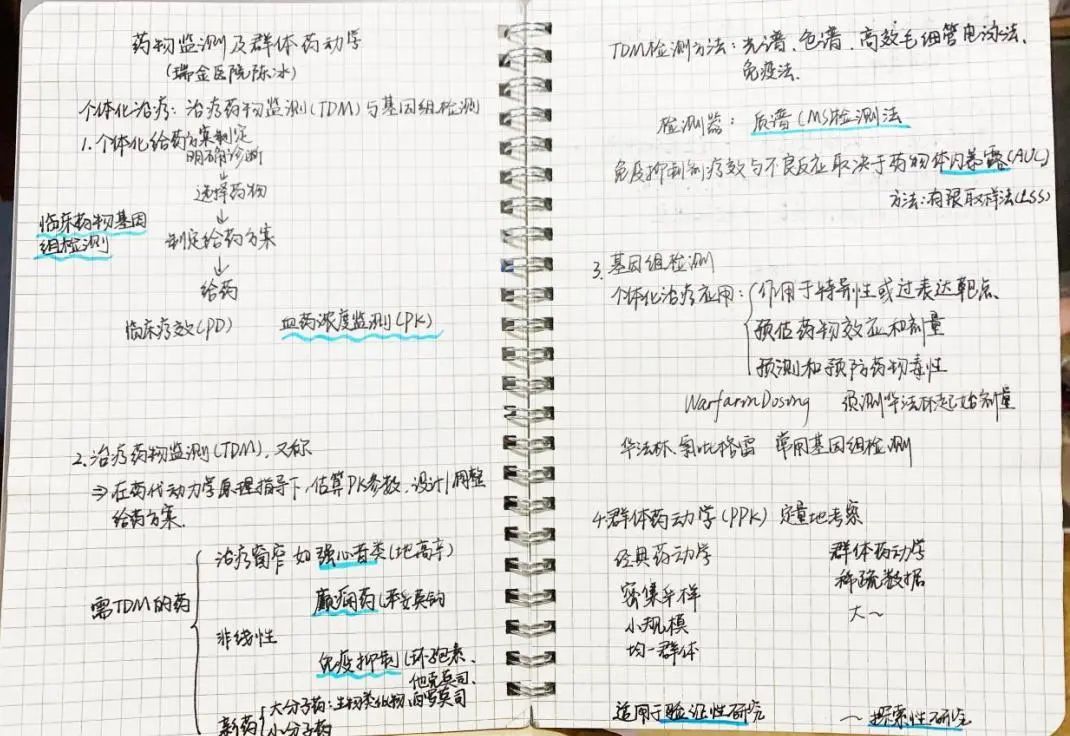 药物监测及群体药动学
(瑞金医院陈冰)
个体化治疗: 治疗药物监测(TDM)与基因组检测
1. 个体化给药方案制定
明确诊断
↓
选择药物
↓
临床药物基因组检测
制定给药方案
↓
给药
临床疗效(PD) 血药浓度监测(PK)
2. 治疗药物监测(TDM), 又称
⇒ 在药代动力学原理指导下, 估算PK参数, 设计/调整
给药方案.
需TDM的药
治疗窗窄 如强心苷类(地高辛)
癫痫药(苯妥英钠
非线性
免疫抑制(环孢素、
他克莫司、
西罗莫司
新药
大分子药: 生物类似物
小分子药
TDM检测方法: 光谱、色谱、高效毛细管电泳法、
免疫法.
检测器: 质谱(MS)检测法
免疫抑制剂疗效与不良反应取决于药物体内暴露(AUC)
方法: 有限取样法(LSS)
3. 基因组检测
个体化治疗应用:
作用于特异性或过表达靶点、
预估药物效应和剂量
预测和预防药物毒性
Warfarin Dosing 预测华法林起始剂量
华法林、氯吡格雷 常用基因组检测
4. 群体药动学(PPK) 定量地考察
经典药动学 群体药动学
密集采样 稀疏数据
小规模 大~
均一群体
适用于验证性研究 ~探索性研究